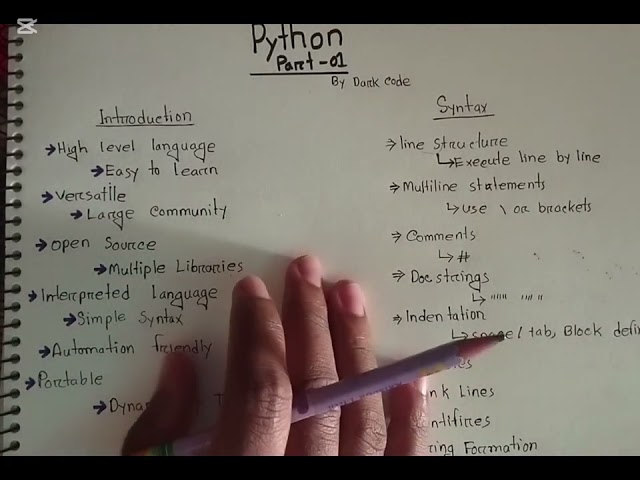 Python
Part-01
By Dark Code
Introduction
High level language
Easy to Learn
Versatile
Large Community
Open Source
Multiple Libraries
Interpreted Language
Simple Syntax
Automation friendly
Portable
Syntax
line structure
Execute line by line
Multiline statements
use \ or brackets
Comments
#
Doc strings
""" """
Indentation
space/tab, Block
Lines
Formation